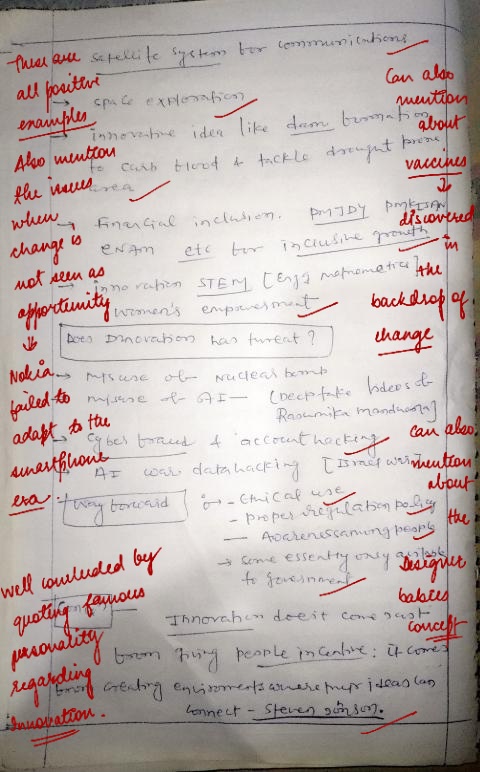 satellite system for communications
→ space exploration
→ innovative idea like dam formation
to curb flood & tackle drought prone
area
→ Financial inclusion. PMJDY PMKISAN
eNAM etc for inclusive growth
→ innovation STEM [Engg mathematics]
women's empowerment
Does Innovation has threat?
→ misuse of Nuclear bomb
→ misuse of AI — [Deepfake videos of
Rasmmika mandanna]
→ Cyber fraud & account hacking
AI war data hacking [Israel war]
Way forward
- Ethical use
- Proper regulation policy
- Awareness among people
→ some essently only available
to government
Innovation doesn't come just
from giving people incentive; it comes
from creating enviroments where their ideas can
connect - Steven Jonson.
These are
all positive
examples
Also mention
the issues
when
change is
not seen as
opportunity
↓
Nokia
failed to
adapt to the
smartphone
era.
Well concluded by
quoting famous
personality
regarding
innovation.
Can also
mention
about
vaccines
↓
discovered
in
the
backdrop of
change
Can also
mention
about
the
Designer
babies
concept